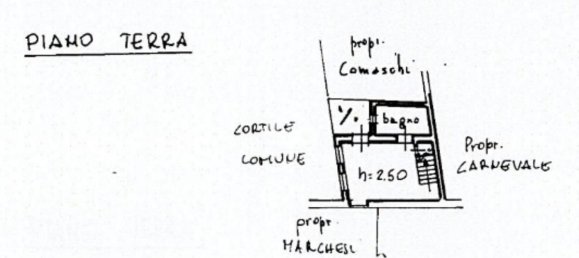 PIANO TERRA
propr.
Comaschi
bagno
CORTILE
COMUNE
Propr.
CARNEVALE
h=2.50
propr.
MARCHESI